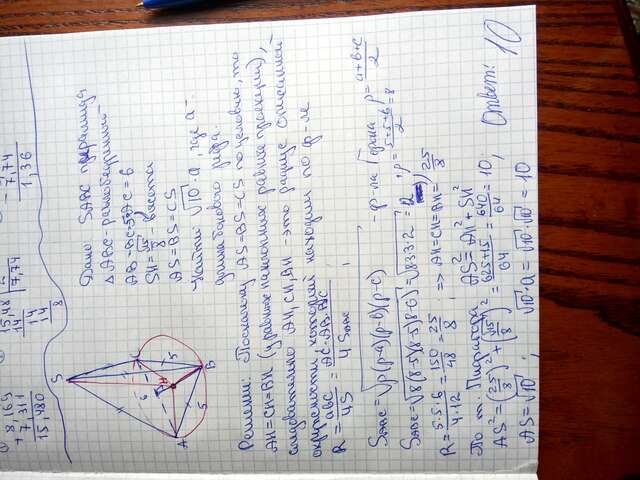 8,169
+ 7,311
15,480
15,48
14
7,74
14
14
8
- 7,74
1,36
S
6
C
H
A
5
5
B
Дано: SABC пирамида
△ABC - равнобедренный
AB = BC = 5; AC = 6
SH = √15/8 - высота
AS = BS = CS
Найти: √10 · a, где a -
длина бокового ребра.
Решение: Поскольку AS = BS = CS по условию, то
AH = CH = BH (у равных наклонных равные проекции),
следовательно AH, CH, BH - это радиус описанной
окружности, который находим по ф-ле
R = abc/4S = AC·AB·BC/4 SABC ;
SABC = √p(p-a)(p-b)(p-c) - ф-ла Герона p = a+b+c/2
SABC = √8(8-5)(8-5)8-6) = √8·3·3·2 = 12 , p = 5+5+6/2 = 8
R = 5·5·6/4·12 = 150/48 = 25/8 ; => AH = CH = BH = 25/8
По т. Пифагора AS² = AH² + SH²
AS² = (25/8)² + (√15/8)² = 625+15/64 = 640/64 = 10,
Ответ: 10
AS = √10 ; √10 · a = √10 · √10 = 10